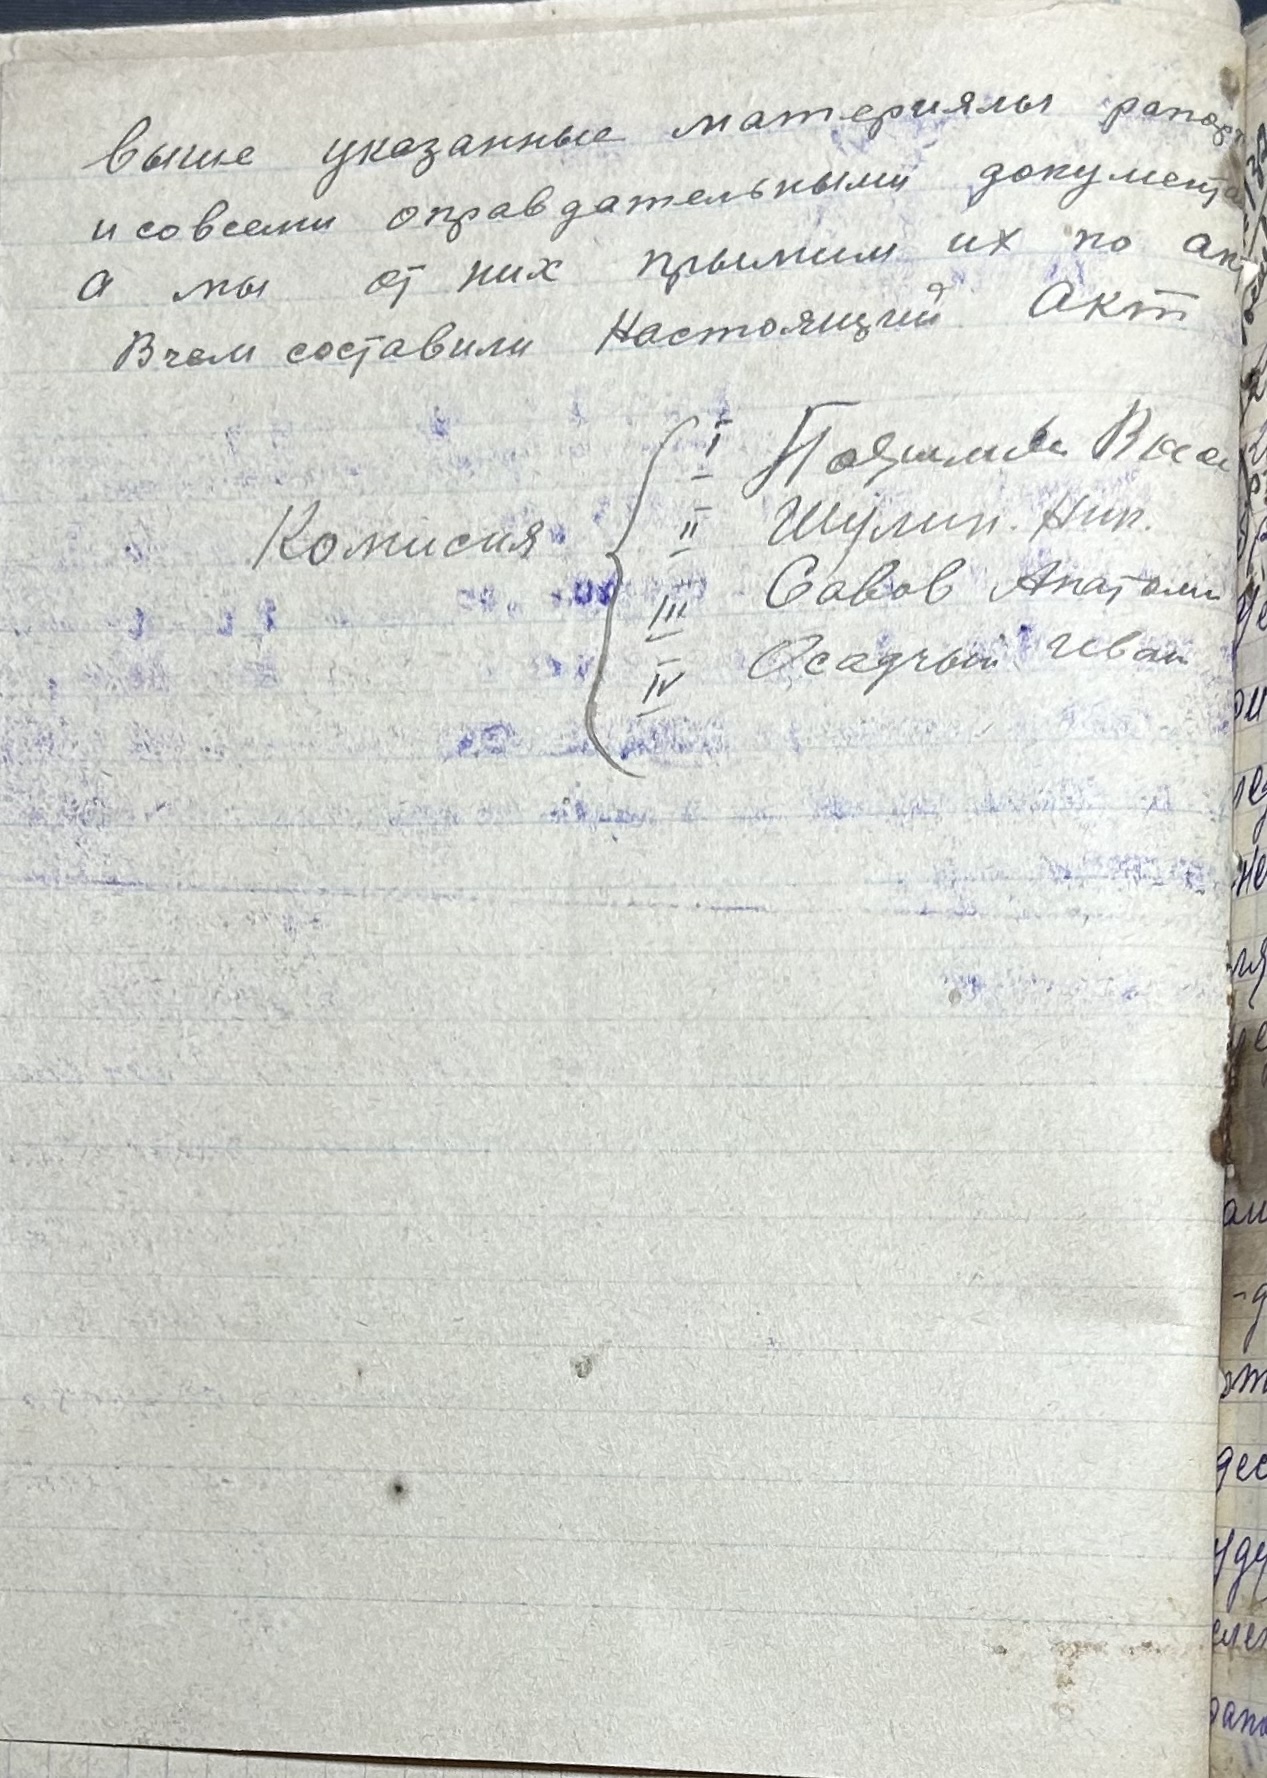 выше указанные материялы рапорт
и совсеми оправдательными документа
а мы от них прымим их по акт
Вчем составили Настоящий Акт
Комисия
I
II Шулип. Ник.
III Савов Анатоли
IV Осадчый Иван